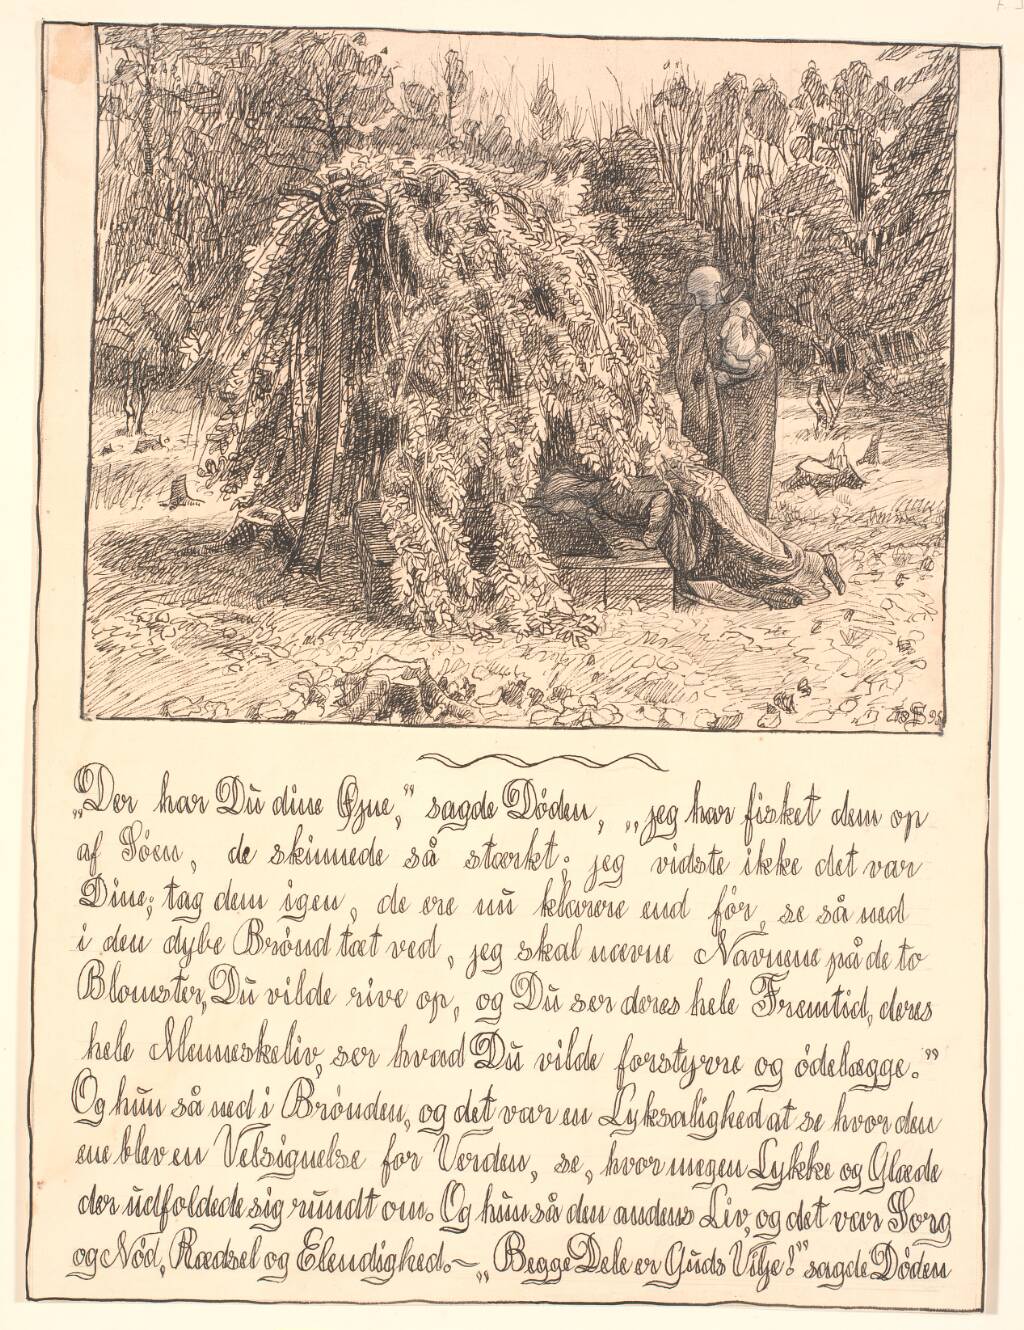 „Der har Du dine Øjne,” sagde Døden, „jeg har fisket dem op
af Søen, de skinnede så stærkt; jeg vidste ikke det var
Dine; tag dem igen, de ere nu klarere end før, se så ned
i den dybe Brønd tæt ved, jeg skal nævne Navnene på de to
Blomster, Du vilde rive op, og Du ser deres hele Fremtid, deres
hele Menneskeliv, ser hvad Du vilde forstyrre og ødelægge.”
Og hun så ned i Brønden, og det var en Lyksalighed at se hvor den
ene blev en Velsignelse for Verden, se, hvor megen Lykke og Glæde
der udfoldede sig rundt om. Og hun så den andens Liv, og det var Sorg
og Nød, Rædsel og Elendighed. — „Begge Dele er Guds Vilje!” sagde Døden